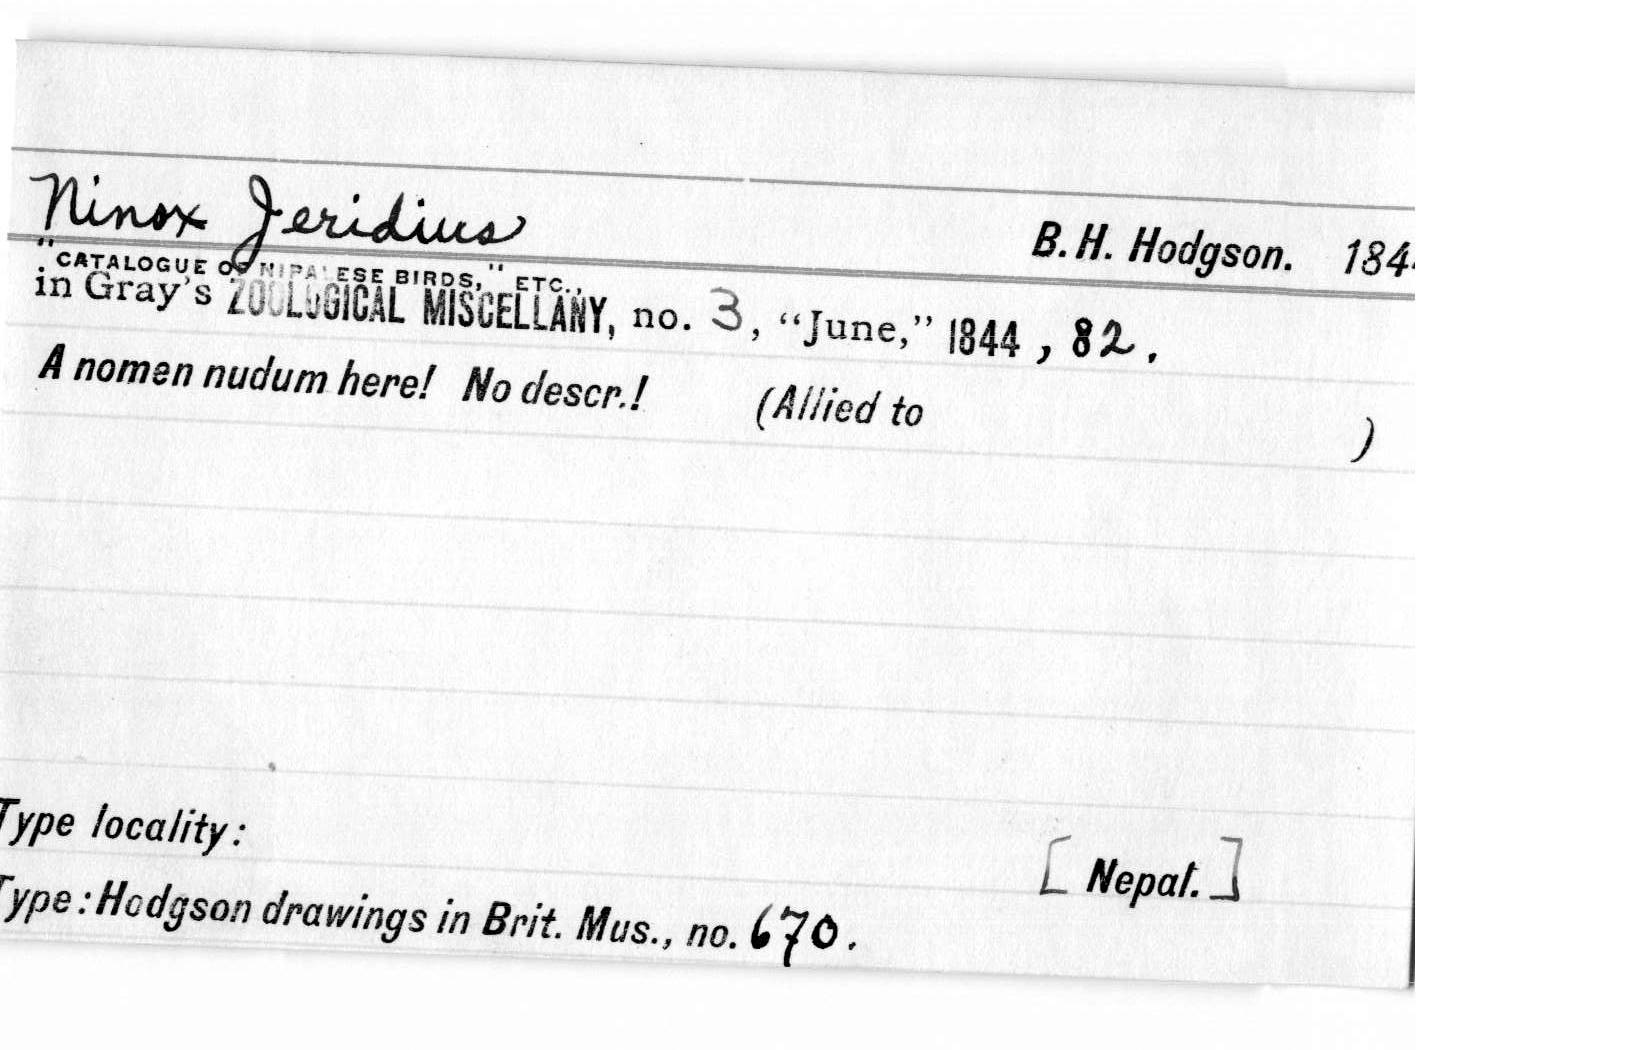 Ninox Jeridius
B. H. Hodgson. 184
"CATALOGUE OF NIPALESE BIRDS," ETC.,
in Gray's ZOOLOGICAL MISCELLANY, no. 3, "June," 1844, 82.
A nomen nudum here! No descr.! (Allied to )
Type locality: [Nepal.]
Type: Hodgson drawings in Brit. Mus., no. 670.